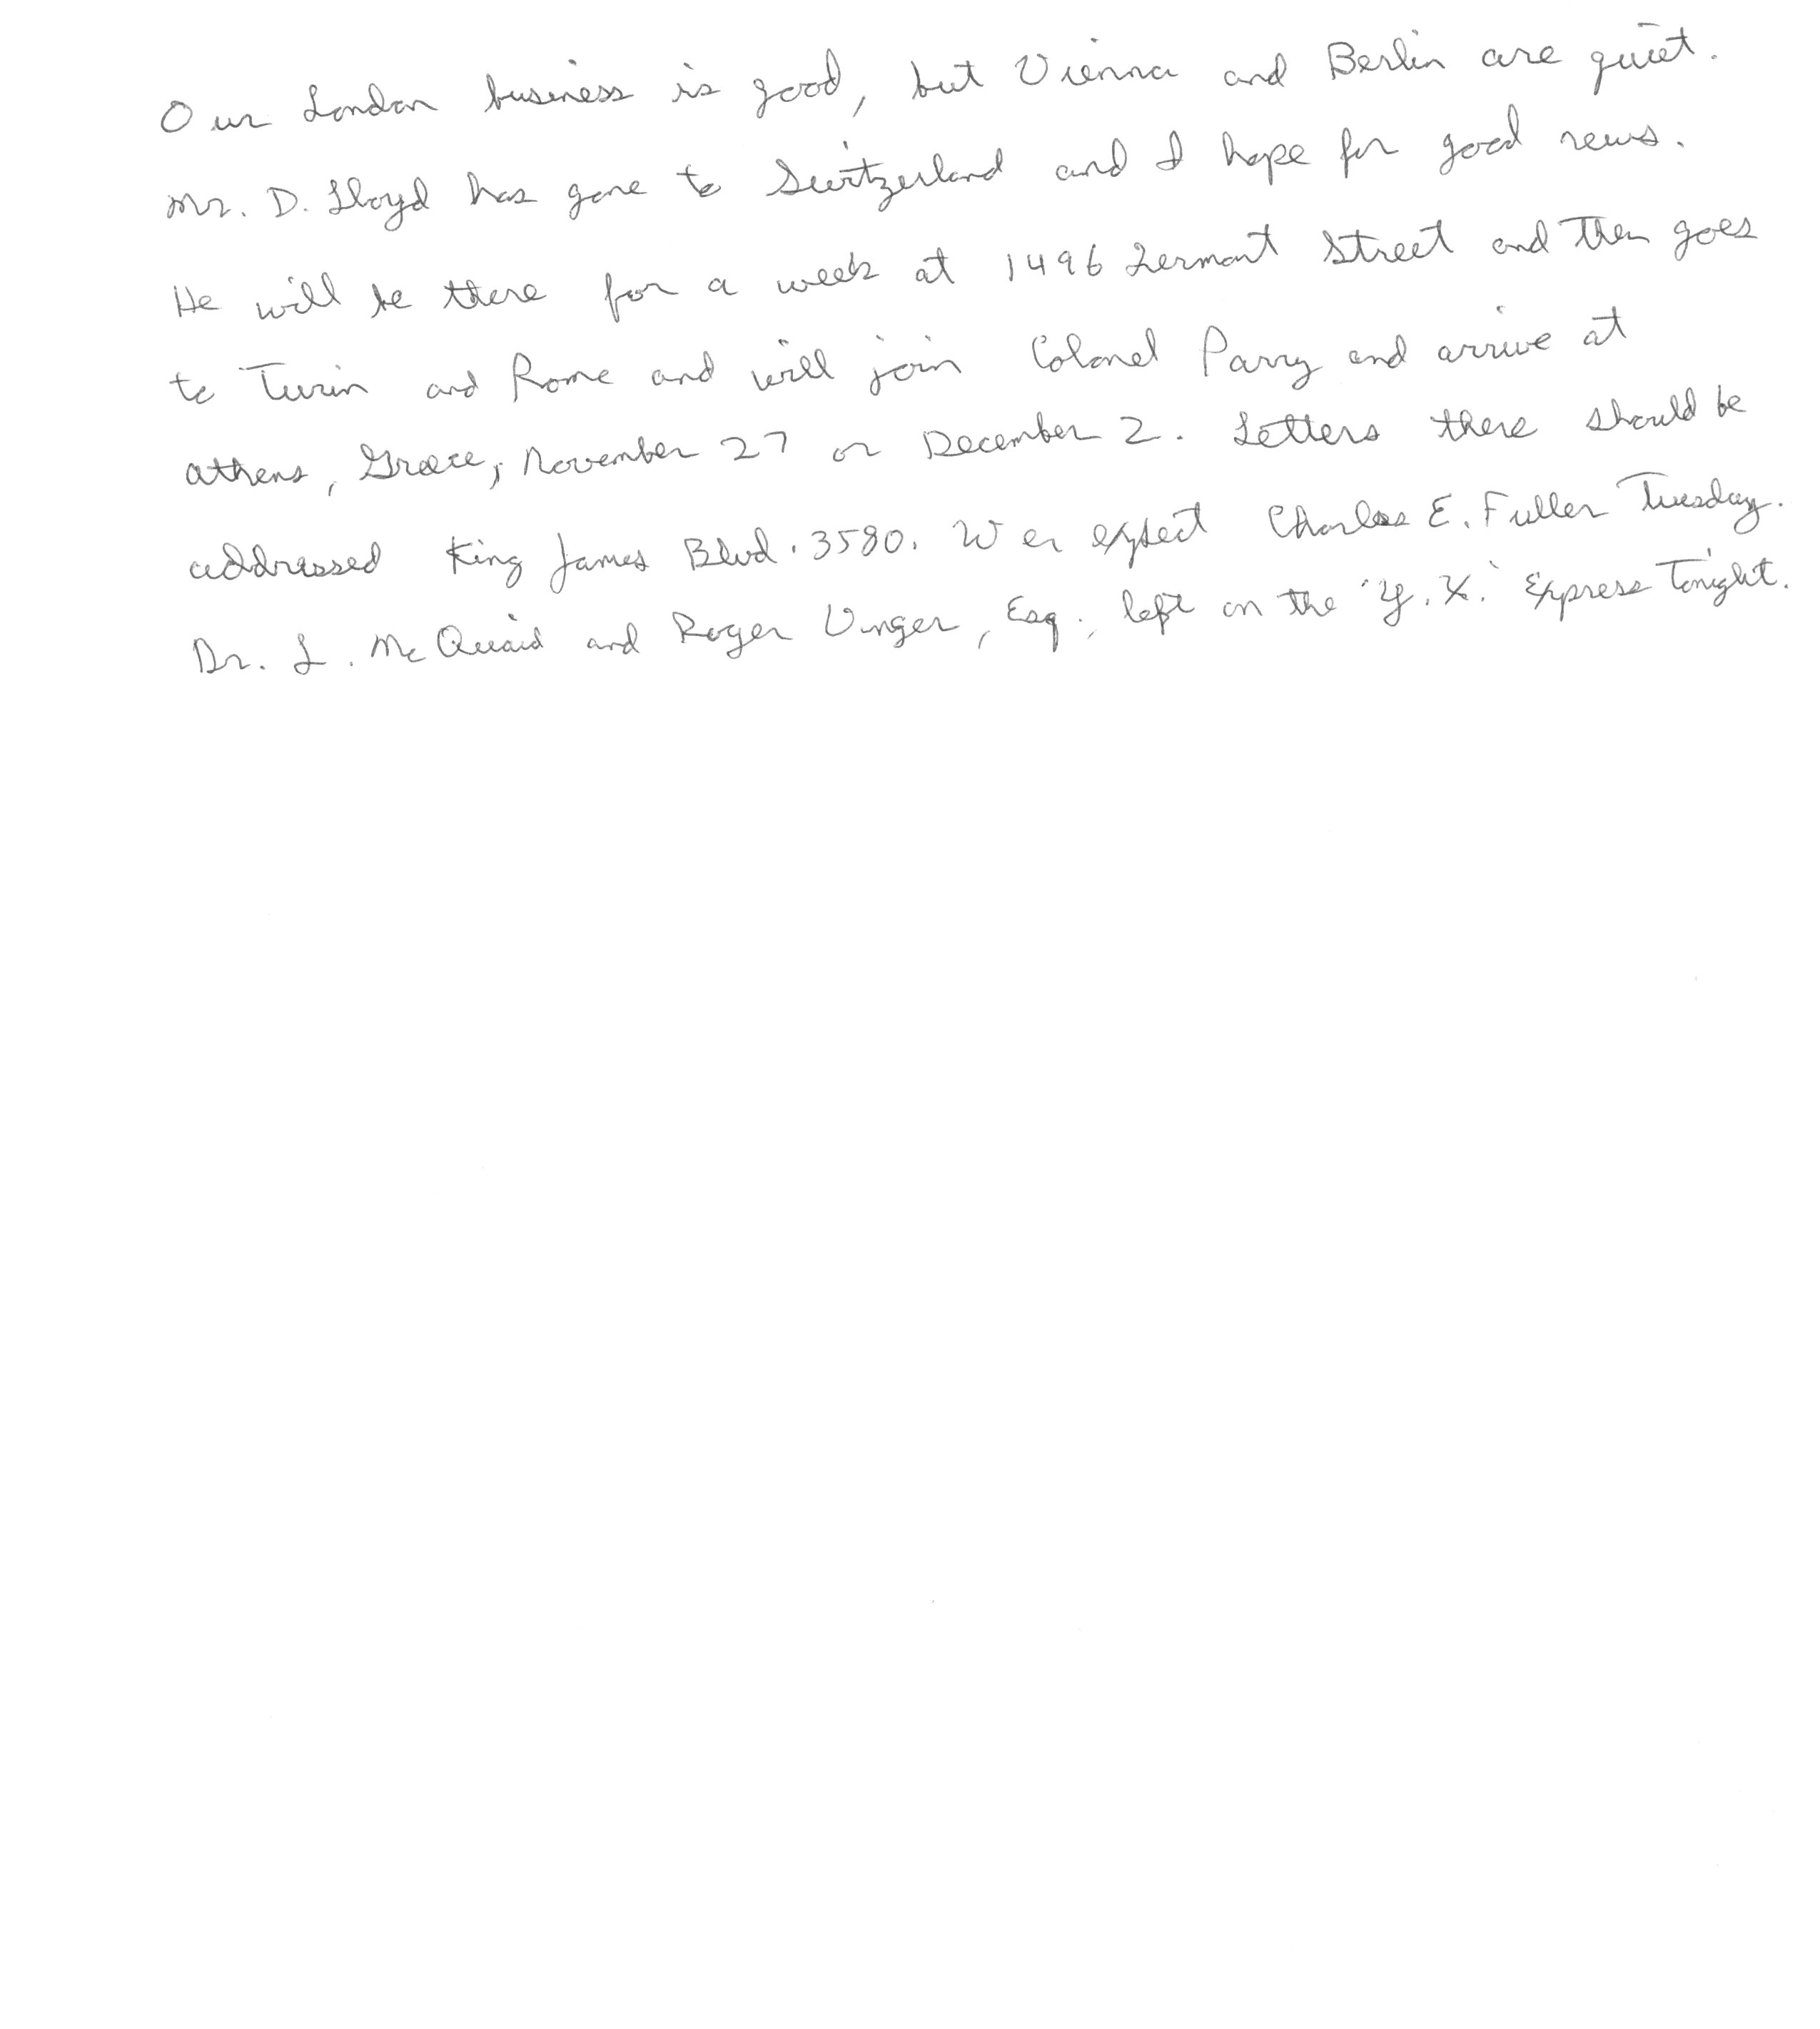 Our London business is good, but Vienna and Berlin are quiet.
Mr. D. Lloyd has gone to Switzerland and I hope for good news.
He will be there for a week at 1496 Zermont Street and then goes
to Turin and Rome and will join Colonel Parry and arrive at
Athens, Greece, November 27 or December 2. Letters there should be
addressed King James Blvd. 3580. We expect Charles E. Fuller Tuesday.
Dr. L. McQuaid and Roger Unger, Esq., left on the "Y.X." Express Tonight.